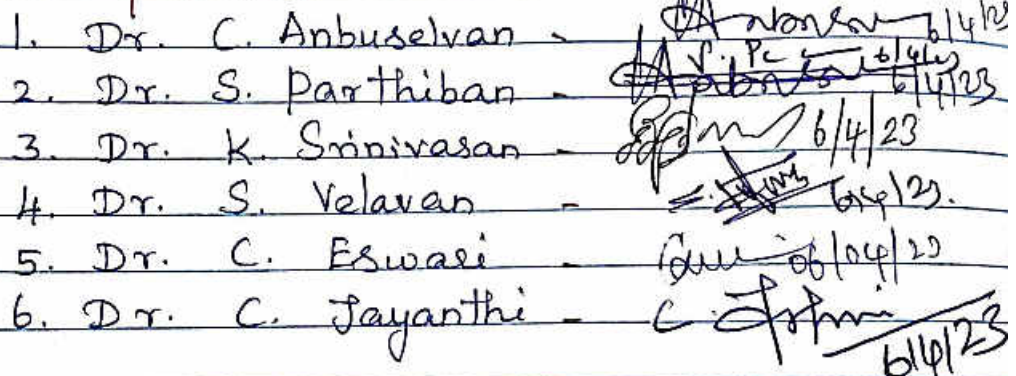 1. Dr. C. Anbuselvan - 6/4/23
2. Dr. S. Parthiban - 6/4/23
3. Dr. K. Srinivasan - 6/4/23
4. Dr. S. Velavan - 6/4/23.
5. Dr. C. Eswari - 06/04/23
6. Dr. C. Jayanthi - C. 6/4/23